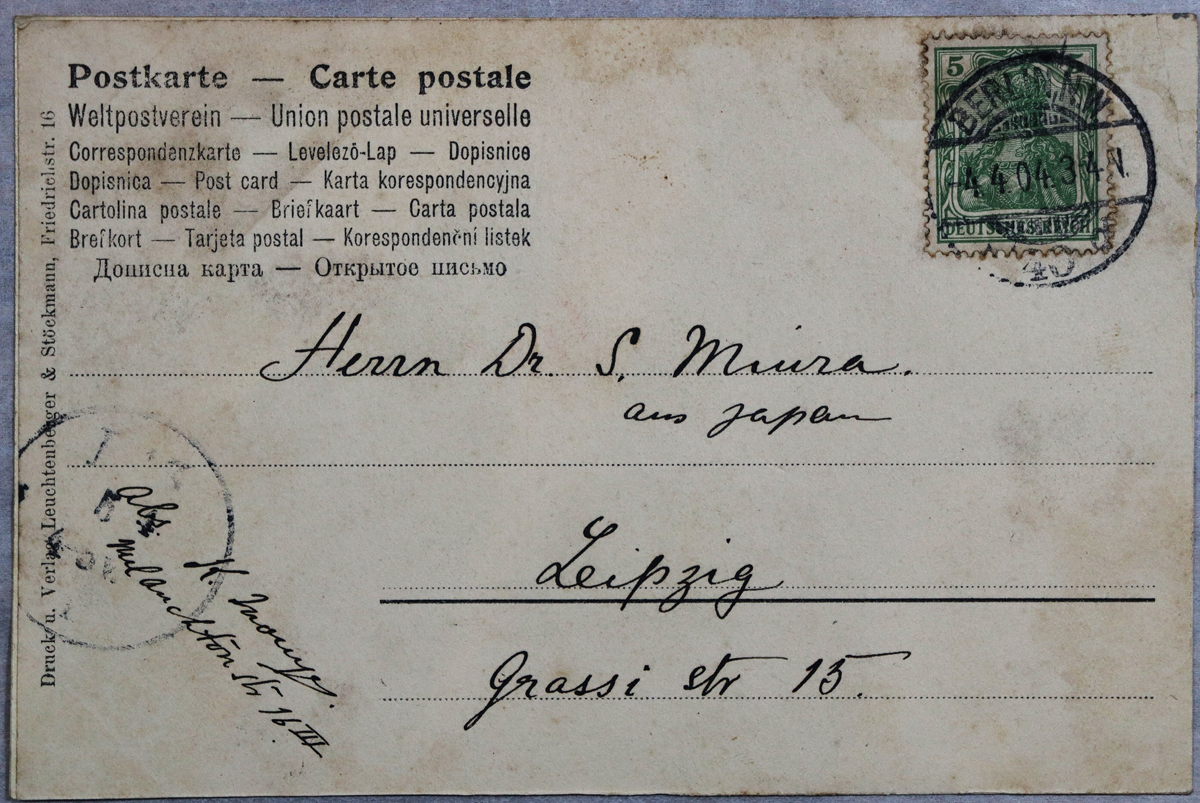 Postkarte — Carte postale
Weltpostverein — Union postale universelle
Correspondenzkarte — Levelező-Lap — Dopisnice
Dopisnica — Post card — Karta korespondencyjna
Cartolina postale — Briefkaart — Carta postala
Brefkort — Tarjeta postal — Korespondenční listek
Дописна карта — Открытое письмо
5
DEUTSCHES REICH
BERLIN N.W.
-4.4.04.3-4N.
40
Herrn Dr. S. Miura.
aus Japan
Leipzig
Grassi str 15.
Abs. K.
Melanchton str 16 III
Druck u. Verlag Leuchtenberger & Stöckmann, Friedrichstr. 16